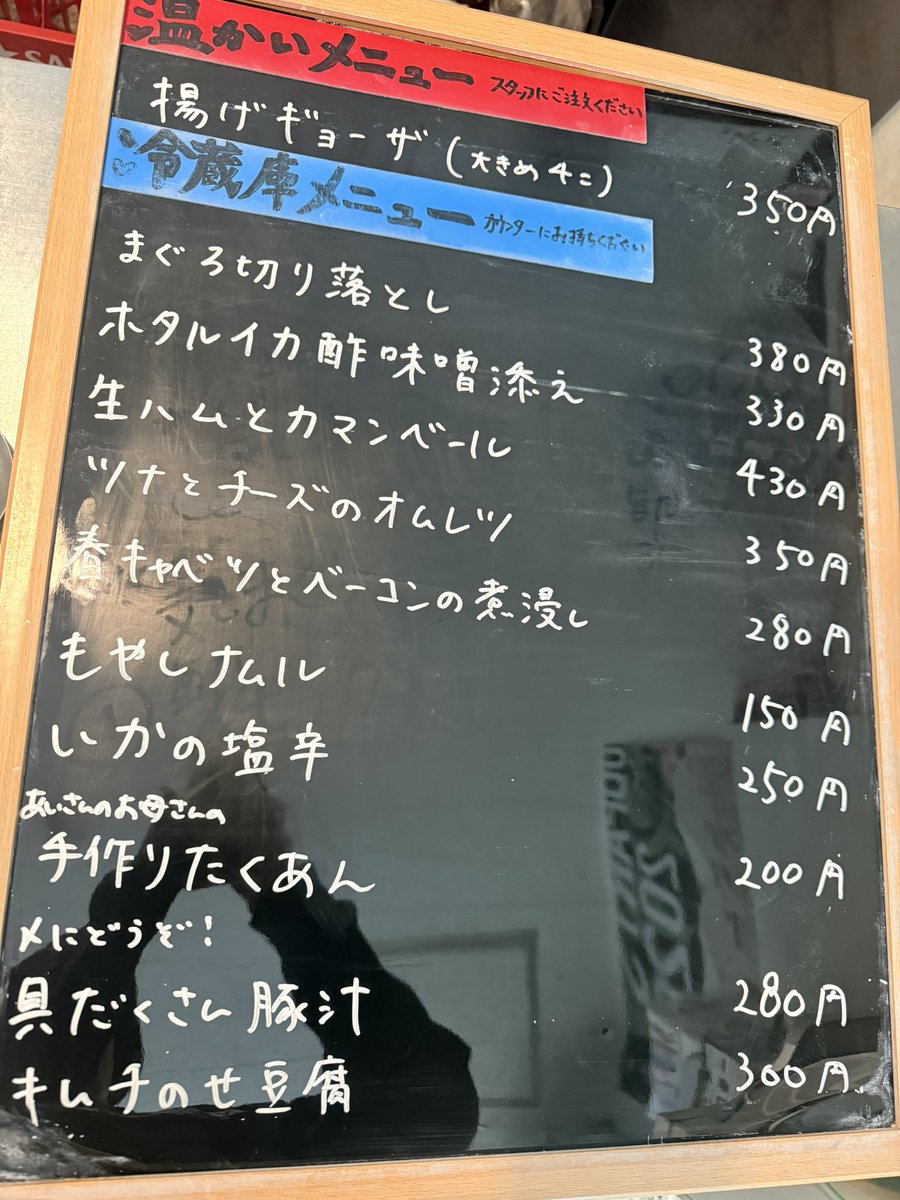 温かいメニュー スタッフにご注文ください
揚げギョーザ(大きめ4コ) 350円
冷蔵庫メニュー カウンターにお持ちください
まぐろ切り落とし 380円
ホタルイカ酢味噌添え 330円
生ハムとカマンベール 430円
ツナとチーズのオムレツ 350円
春キャベツとベーコンの煮浸し 280円
もやしナムル 150円
いかの塩辛 250円
あいさんのお母さんの
手作りたくあん 200円
〆にどうぞ!
具だくさん豚汁 280円
キムチのせ豆腐 300円